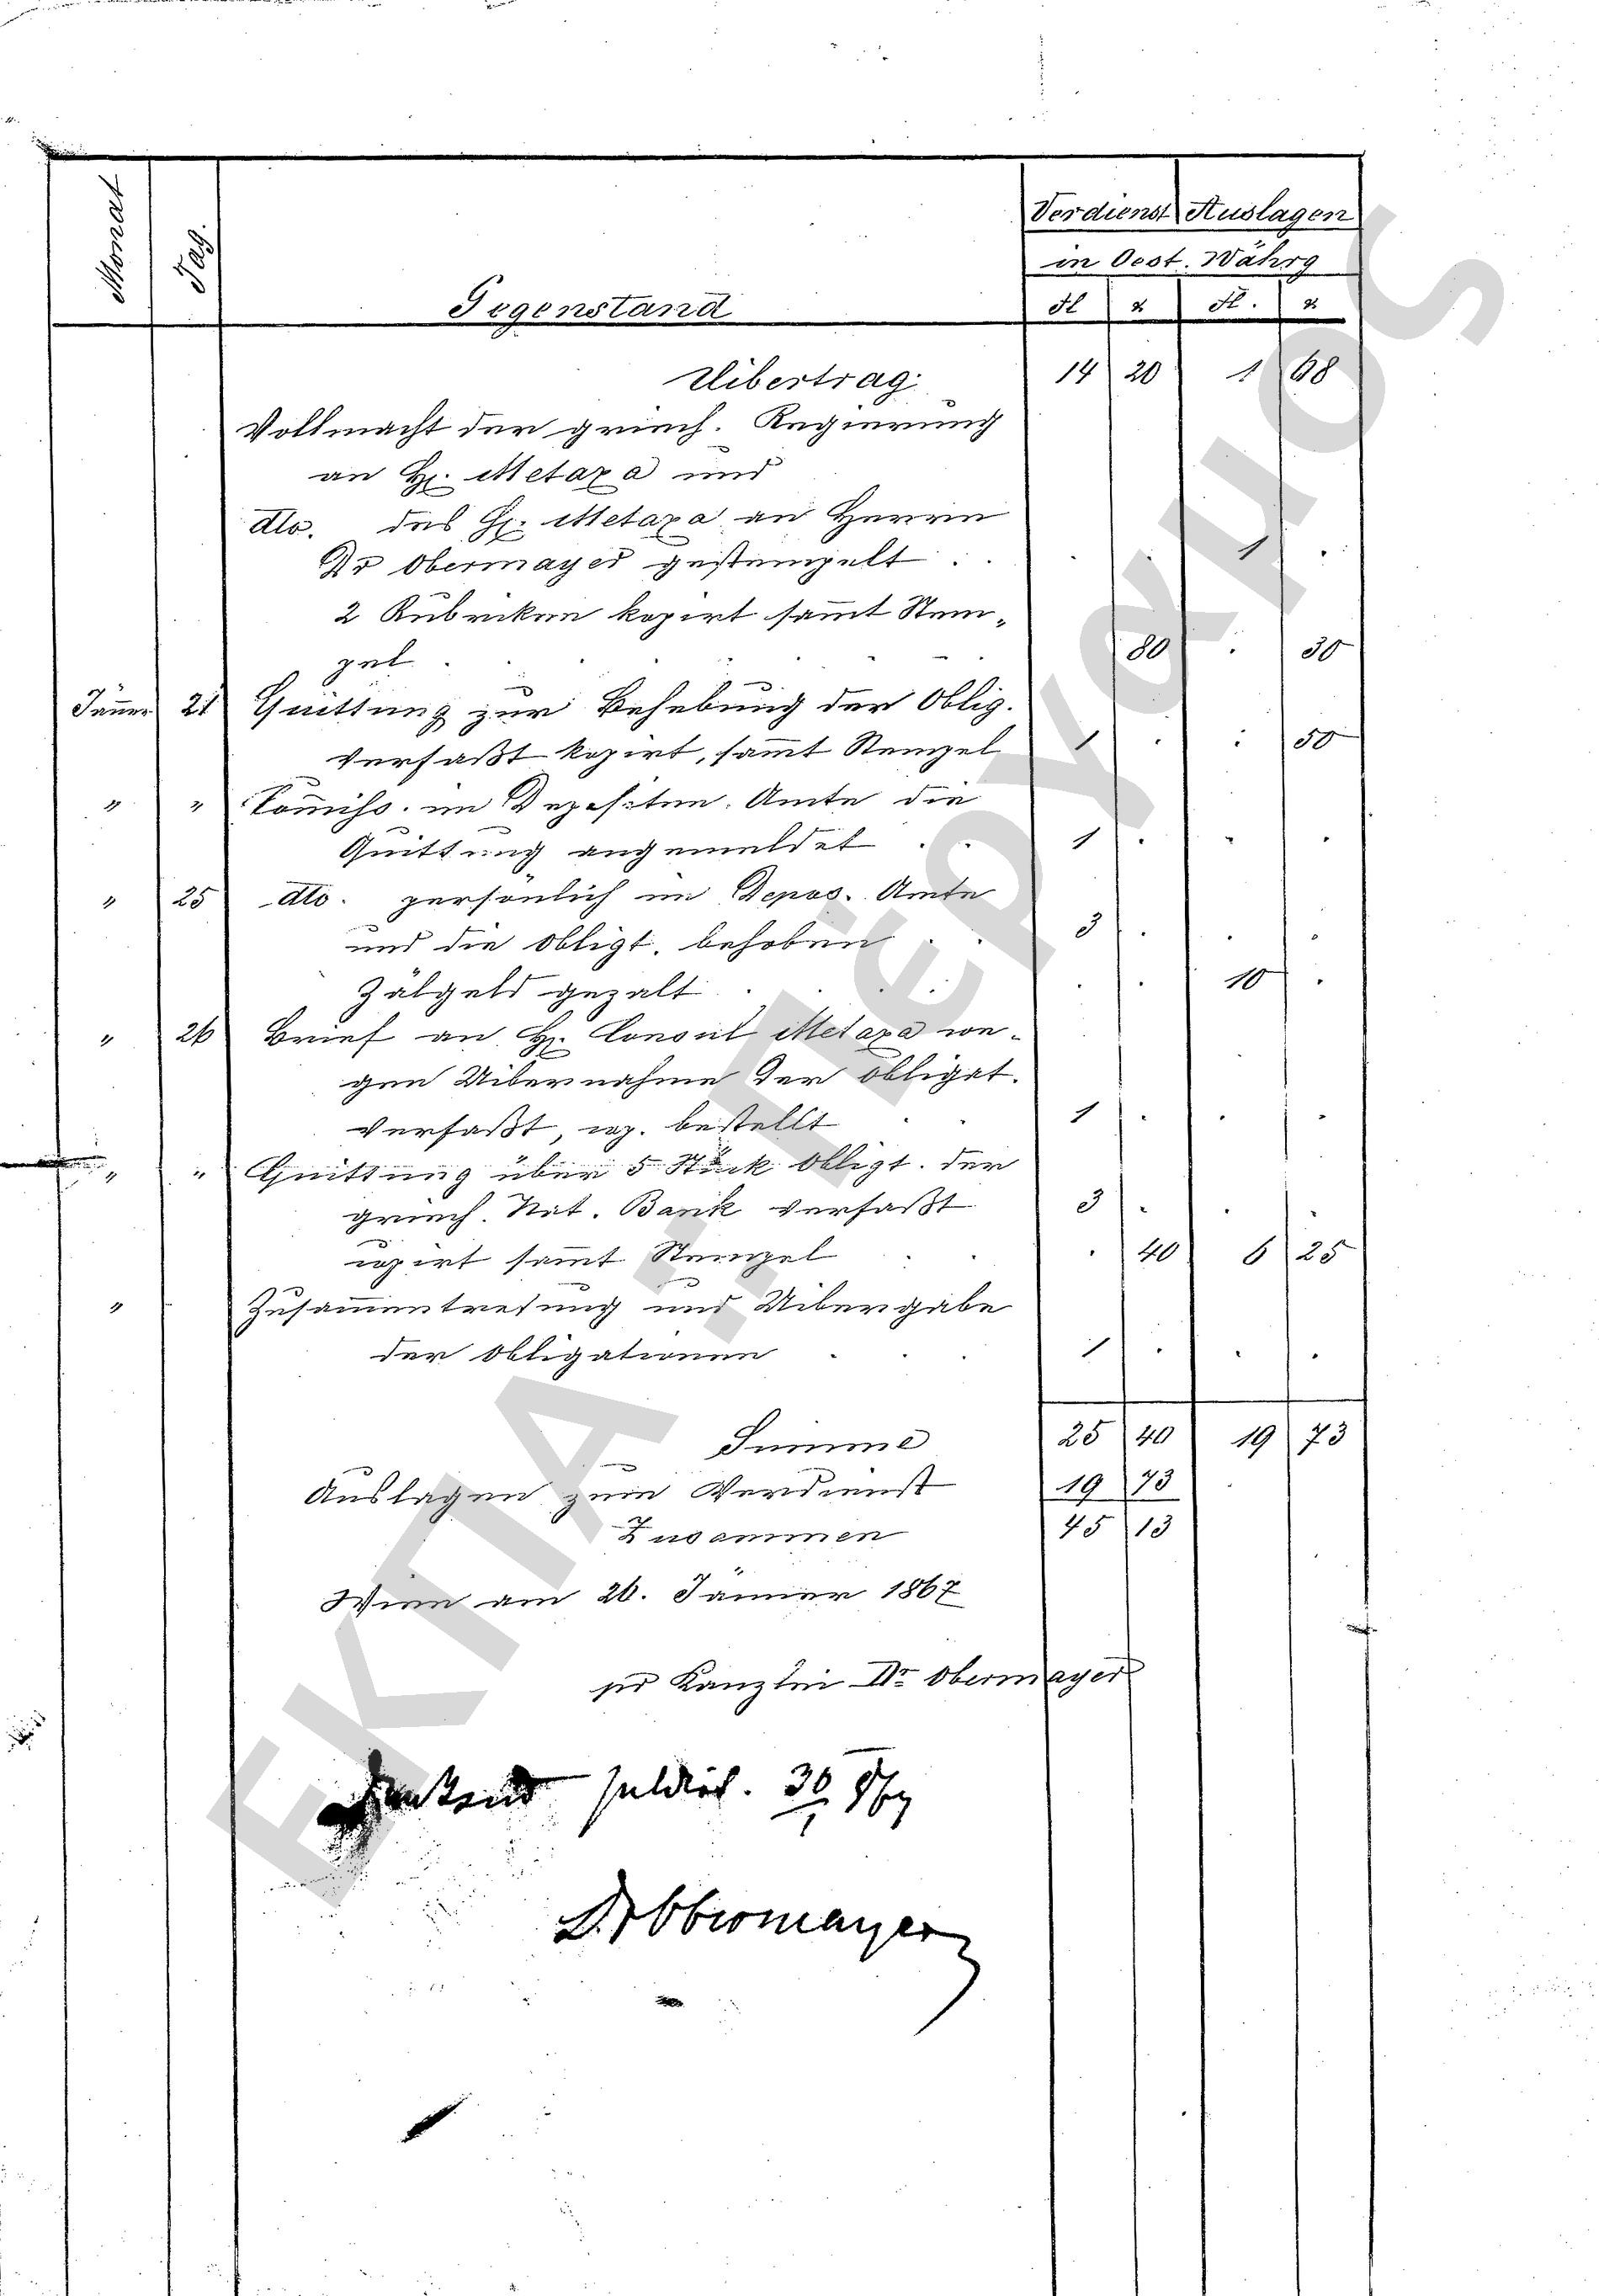 Monat Tag. Gegenstand Verdienst Auslagen
in Oest. Währg
Fl x Fl. x
Uibertrag 14 20 1 68
Vollmacht der griech. Regierung
an H. Metaxa und
dto. des H. Metaxa an Herrn
Dr Obermayer gestempelt . . . . 1 .
2 Rubriken kopirt sam̄t Stem-
pel . . . . 80 . 30
Jäner 21 Quittung zur Behebung der Oblig.
verfaßt kopirt, sam̄t Stempel 1 . . 50
" " Com̄iss. im Depositen. Amte die
Quittung angemeldet . . 1 . . .
" 25 dto. persönlich im Depos. Amte
und die Obligt. behoben . . 3 . . .
Zälgeld gezalt . . . . . 10 .
" 26 Brief an H. Consul Metaxa we-
gen Uibernahme der Obligat.
verfaßt, cop. bestellt . . 1 . . .
" " Quittung über 5 Stück Obligt. der
griech. Nat. Bank verfaßt 3 . . .
copirt sam̄t Stempel . . . 40 6 25
" Zusam̄entretung und Uibergabe
der Obligationen . . . 1 . . .
Summe 25 40 19 73
Auslagen zum Verdienst 19 73
Zusammen 45 13
Wien am 26. Jänner 1867
pr Kanzlei Dr Obermayer
dankend saldirt. 30/1 867
Dr Obermayer
ΕΚΠΑ - Πέργαμος